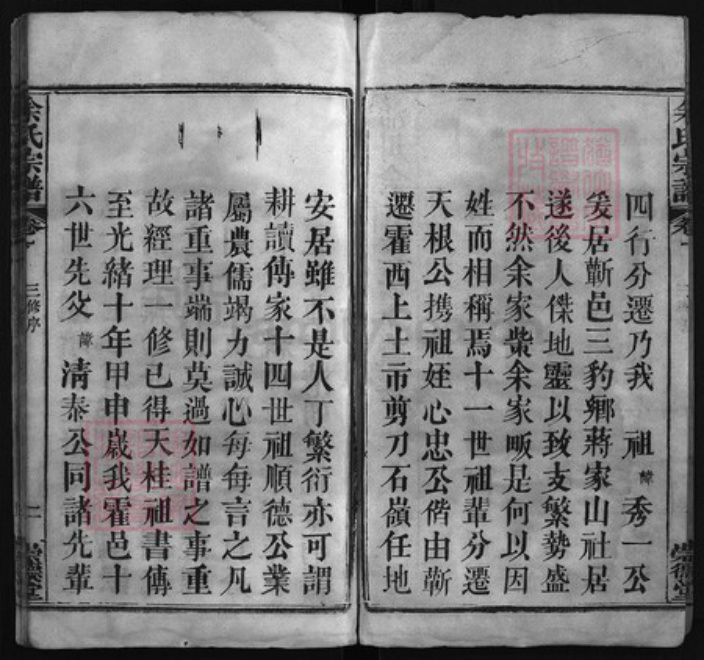 四行分遷乃我 祖 諱 秀一公
爰居蘄邑三豹鄉蔣家山社居
遂後人傑地靈以致支繁勢盛
不然余家柴余家畈是何以因
姓而相稱焉十一世祖輩分遷
天根公携祖姪心忠公偕由蘄
遷霍西上土市剪刀石嶺任地
安居雖不是人丁繁衍亦可謂
耕讀傳家十四世祖順德公業
屬農儒竭力誠心每每言之凡
諸重事端則莫過如譜之事重
故經理一修已得天桂祖書傳
至光緒十年甲申歲我霍邑十
六世先父 諱 清泰公同諸先輩
余氏宗譜 卷一 三修序 二 崇德堂